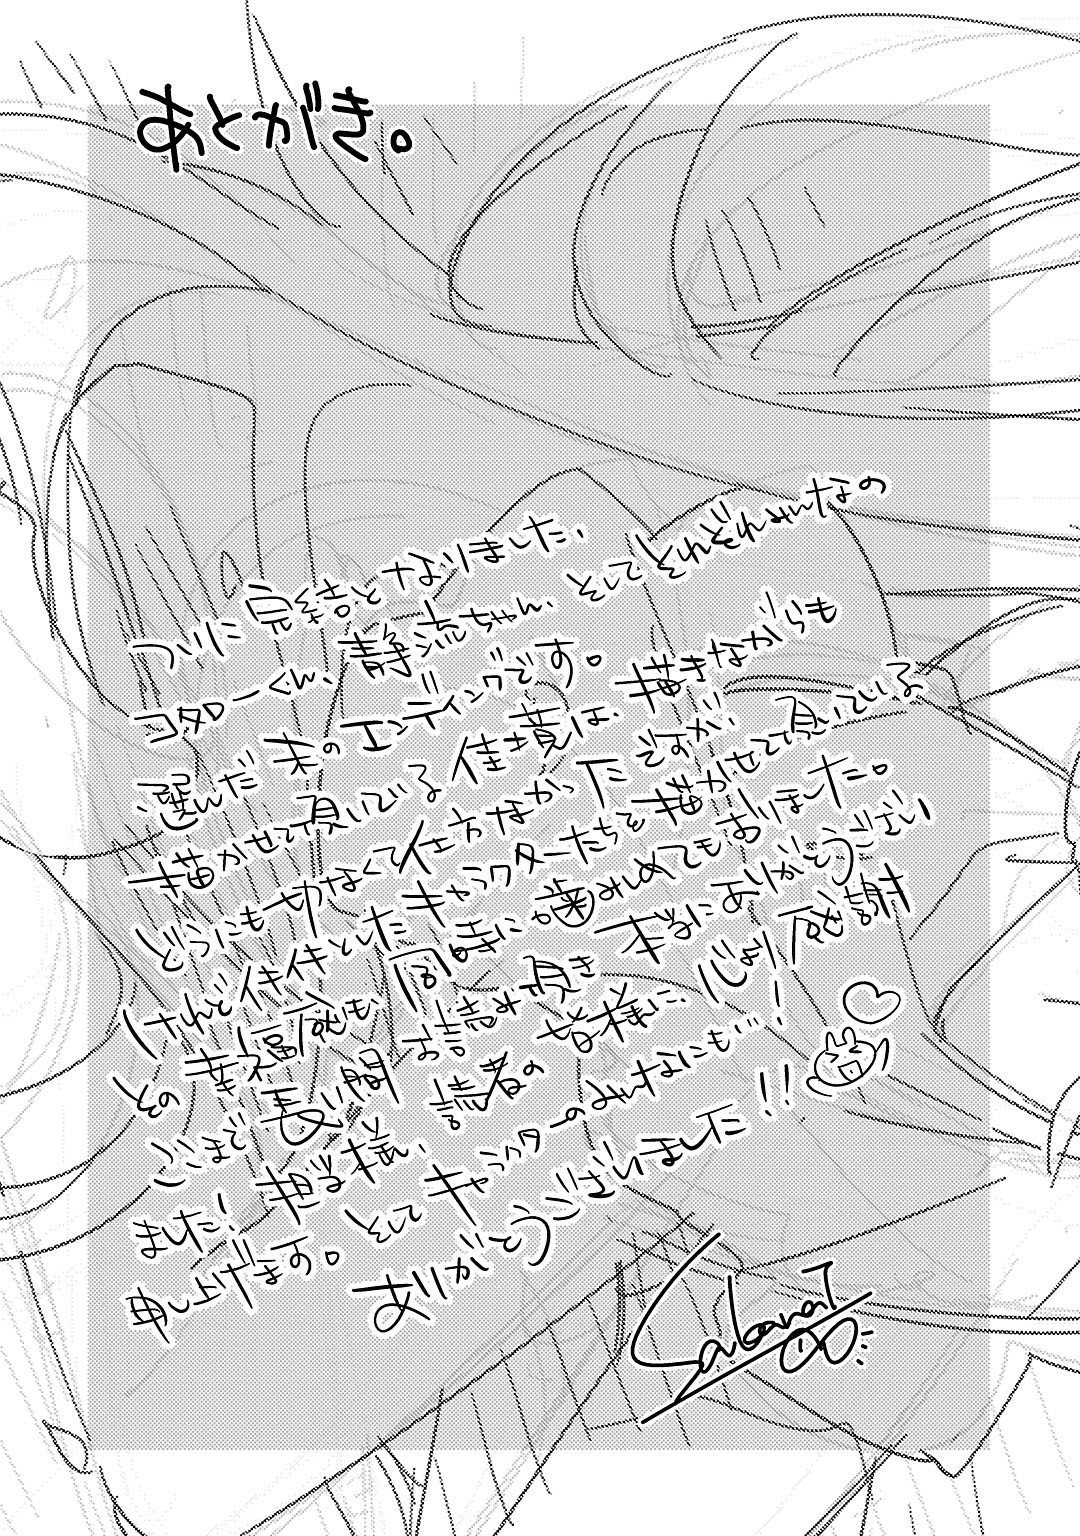 あとがき。
ついに完結となりました、
コタローくん、静流ちゃん、そしてそれぞれみんなの
選んだ末のエンディングです。
描かせて頂いてる佳境は、描きながらも
どうにも切なくて仕方なかったですが、
けれど伴侶とした キャラクターたちを描かせて頂いている
その幸福感も同時に噛みしめてもおりました。
ここまで長い間お読み頂き本当にありがとうござい
ました！担当様、読者の皆様に、心より感謝
申し上げます。そしてキャラクターのみんなにも…！
ありがとうございました!!
SakanaT